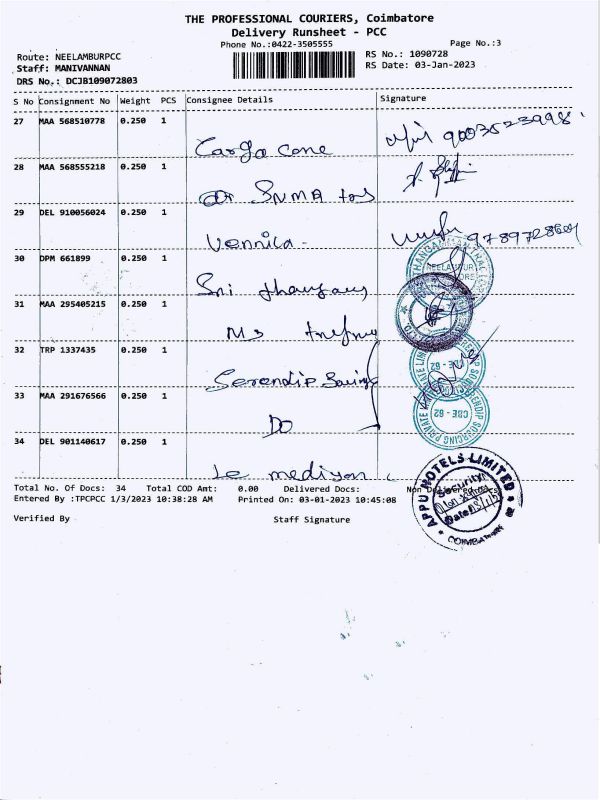 THE PROFESSIONAL COURIERS, Coimbatore
Delivery Runsheet - PCC
Phone No.:0422-3505555
Page No.:3
Route: NEELAMBURPCC
RS No.: 1090728
Staff: MANIVANNAN
RS Date: 03-Jan-2023
DRS No.: DCJB109072803
S No Consignment No Weight PCS Consignee Details Signature
27 MAA 568510778 0.250 1
Cargo Care
28 MAA 568555218 0.250 1
SNMA
29 DEL 910056024 0.250 1
Vennila
30 DPM 661899 0.250 1
NEELAMBUR
Sri
31 MAA 295405215 0.250 1
Ms
32 TRP 1337435 0.250 1
Serendip
CBE - 62
33 MAA 291676566 0.250 1
DO
CBE - 62
SERENDIP SOURCING PRIVATE LIMITED
34 DEL 901140617 0.250 1
Le
Total No. Of Docs: 34 Total COD Amt: 0.00 Delivered Docs: Non Delivered
Entered By :TPCPCC 1/3/2023 10:38:28 AM Printed On: 03-01-2023 10:45:08
APPU HOTELS LIMITED
Security
Date
COIMBATORE
Verified By Staff Signature